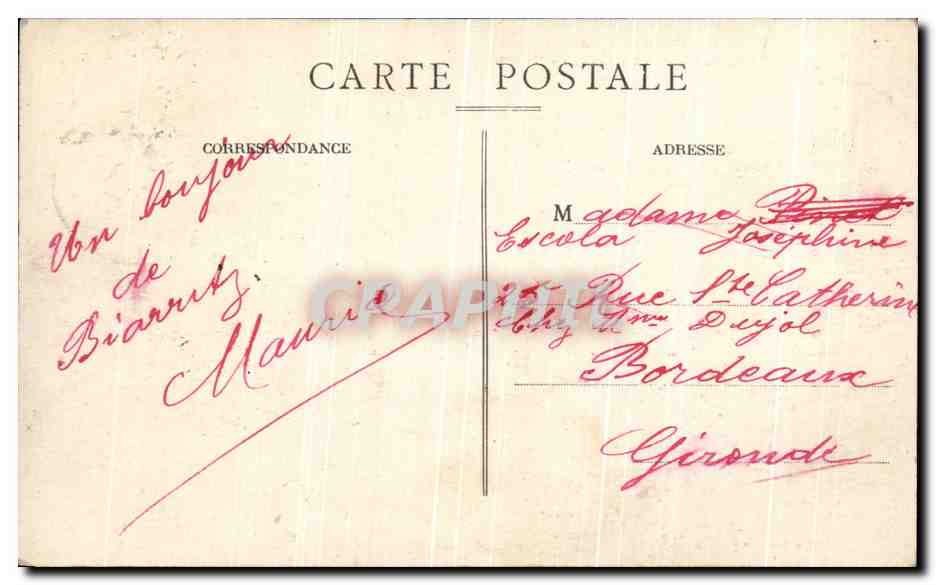 CARTE POSTALE
CORRESPONDANCE
Un bonjour
de
Biarritz
Maurice
ADRESSE
Madame
Escola Joséphine
25 Rue Ste Catherine
Chez Mme Dujol
Bordeaux
Gironde
CPAPHIL